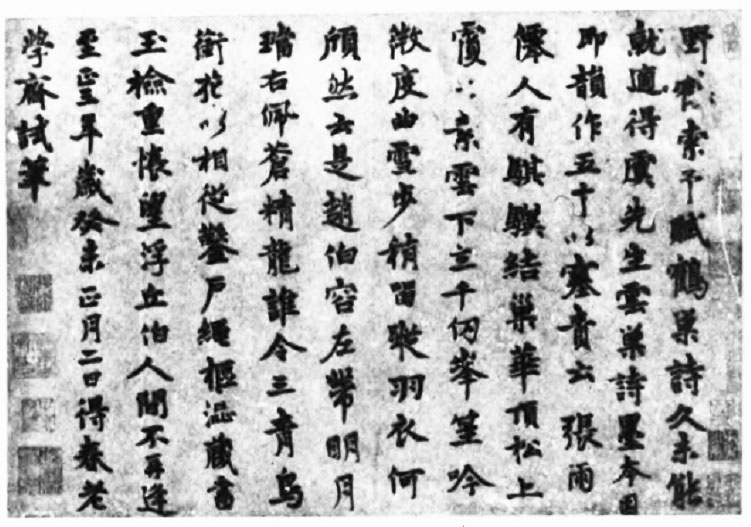 野賓索予賦鶴巢詩久未能
就適得虞先生雲巢詩墨本因
即韻作五十以塞責云 張雨
僊人有騏驥結巢華頂松上
覆八景雲下立千仞峯笙吟
微度曲雪步稍留蹤羽衣何
頎然云是趙伯容左帶明月
璫右佩蒼精龍誰令三青鳥
銜花以相從鑿戶繩樞澁藏書
玉檢重悵望浮丘伯人間不再逢
至正三年歲癸未正月二日得春老
學齋試筆